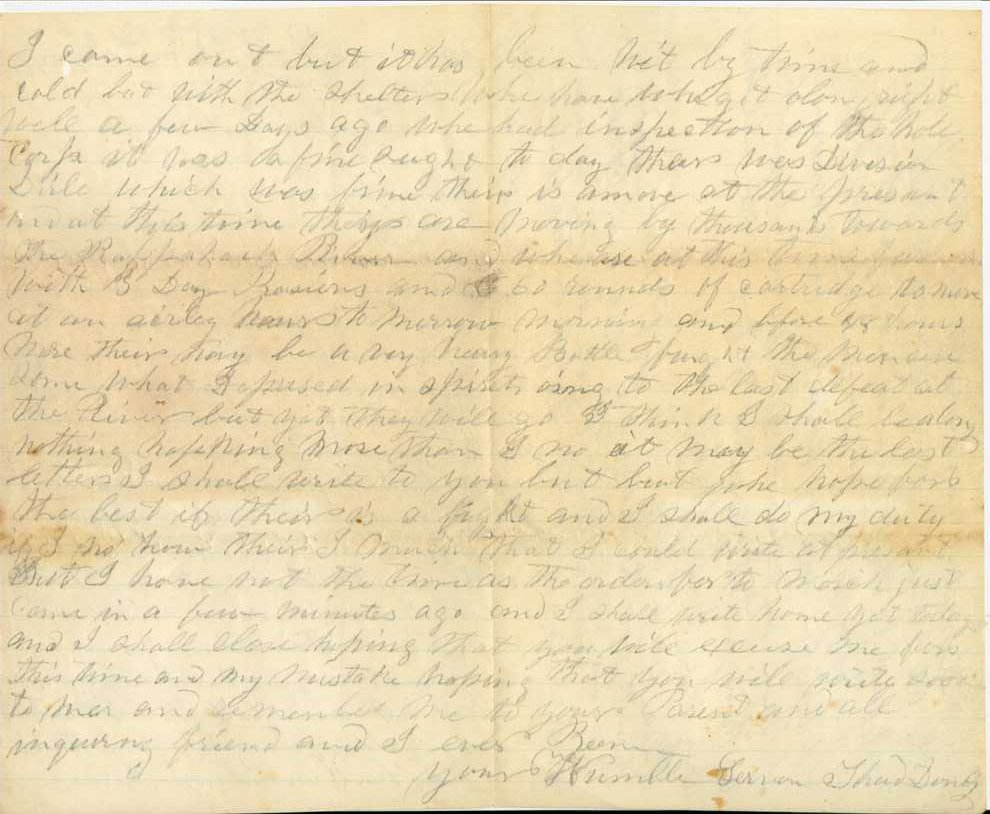 I came out but it has been Wet by time and
cold but with the shelters whe have whe get alon right
well a few Days ago whe had inspection of the hole
Corps it was a fine sught to day thears was Division
Drile which was fine theirs is a move at the presant
and at this time theys are moving by thousands towards
the Rappahack River and whe are at this time
With 8 Day Rasions and 60 rounds of catridge to move
at an airley hours to morrow mornin and before 48 hours
More theirs may be a very heavy Battle fought the Men are
some what in spirits oing to the last defeat at
the River but yet they wile go I think I shall
nothing happning more than I no it may be the last
letters I shall write to you but but whe hope for
the best if theirs is a fight and I shall do my duty
if I no how theirs I much that I could write at presant
But I have not the time as the orders for to march just
Came in a few minutes ago and I shall write home yet today
and I shall close hoping that you wile excuse me fors
this time and my mistake hoping that you wile write soon
to mee and remember me to your Parent and all
inquring friend and I ever Been
your Humble Servon Thad